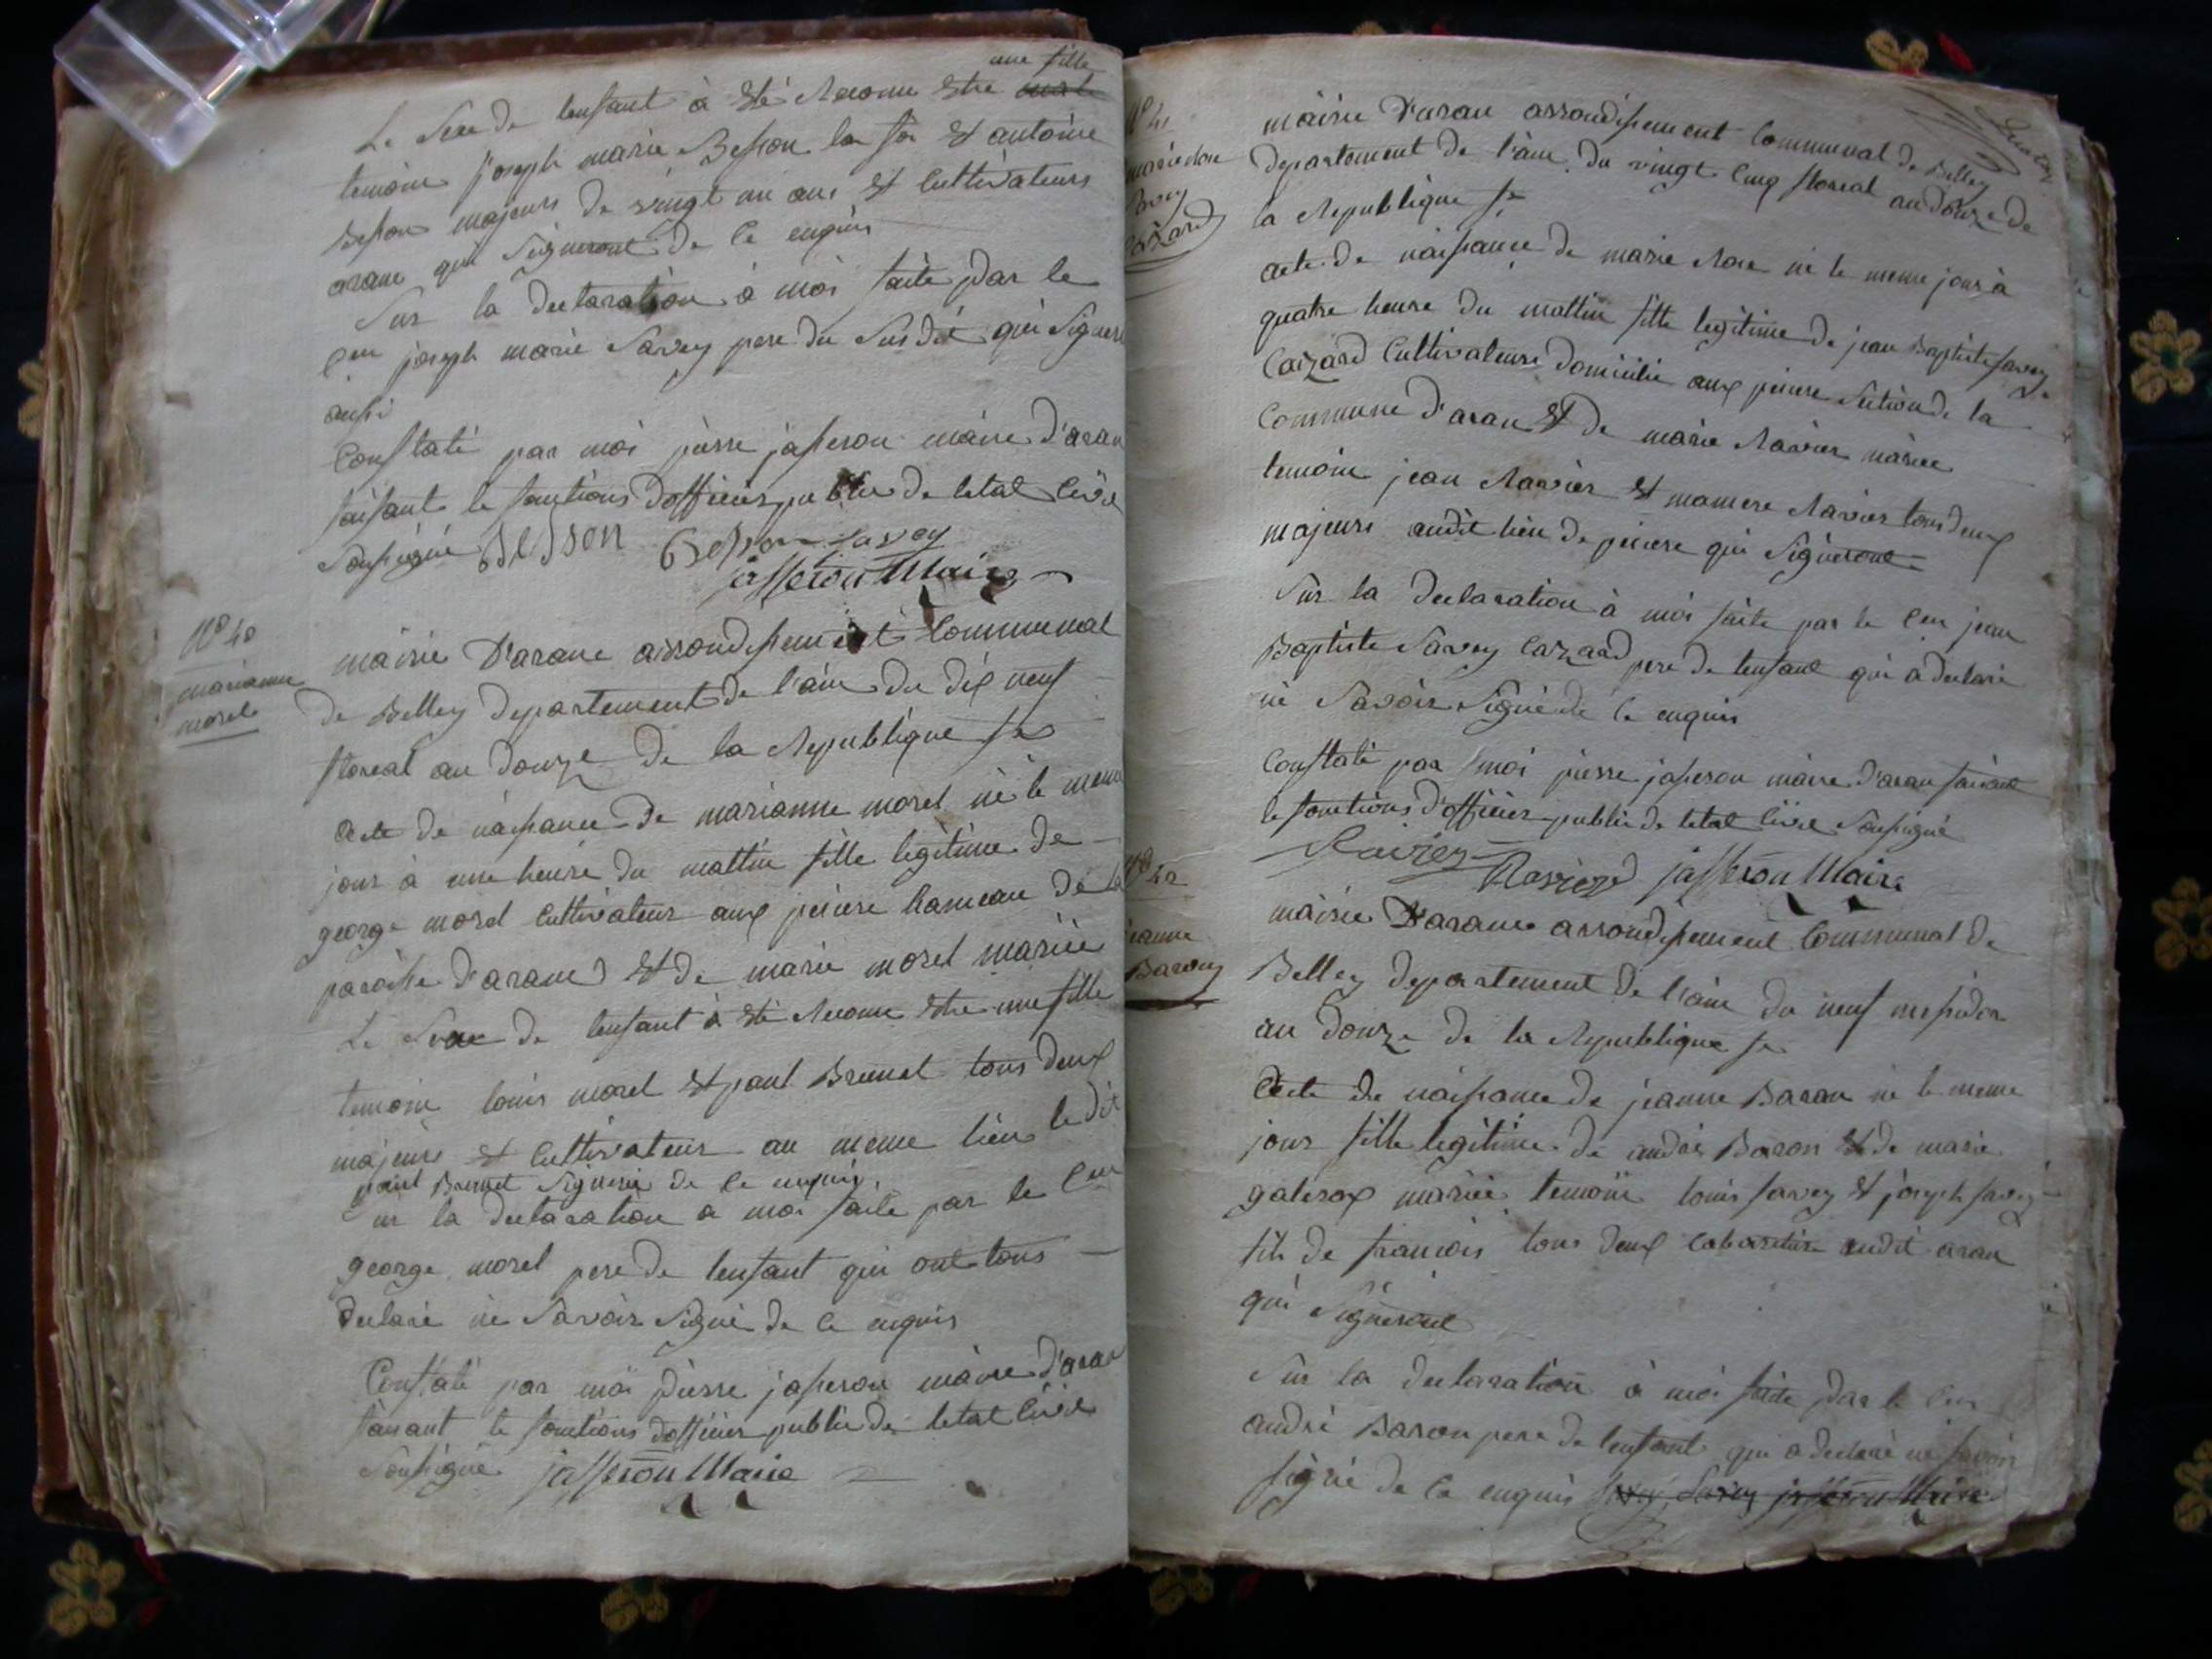 une fille
Le Sexe de lenfant à êté Reconu etre male
temoins joseph marie Besson la fin et antoine
Besson majeurs de vingt un ans et Cultivateurs
arane qui Signeront de ce enquis
Sur la declaration à moi faite par le
Cen joseph marie Savey pere du Susdit qui Signera
aussi
Constaté par moi pierre jasseron maire d'aran
faisant le fonctions d'officier public de letat civil
soussigné Besson Besson Savey
jasseron Maire
N° 40
marianne
morel
mairie D'arane arrondissement Communal
de Belley Departement de l'ain du dix neuf
floreal an douze de la Republique
acte de naissance de marianne morel né le meme
jour à une heure du mattin fille legitime de
george morel cultivateur aux hameau de la
paroisse d'arane et de marie morel mariée
Le Sexe de lenfant à êté Reconu etre une fille
temoin louis morel et paul Brunet tous deux
majeurs et Cultivateurs au meme lieu ledit
paul Brunet Signera de ce enquis,
Sur la declaration a moi faite par le Cen
george morel pere de lenfant qui ont tous
declaré ne Savoir Signé de ce enquis
Constaté par moi pierre jasseron maire d'aran
faisant le fonctions d'officier public de letat civil
soussigné jasseron Maire
N° 41
marie Rose
Savey
Cazard
mairie D'aran arrondissement Communal de Belley
departement de l'ain du vingt Cinq floreal an Douze de
la Republique
acte de naissance de marie Rose né le meme jour à
quatre heure du mattin fille legitime de jean Baptiste Savey
Cazard Cultivateurs domicilié aux Section de la
Commune D'aran et de marie Ravier mariée
temoin jean Ravier et Ravier tous deux
majeurs audit lieu de qui Signeront
Sur la declaration à moi faite par le Cen jean
Baptiste Savey Cazard pere de lenfant qui a declaré
ne Savoir Signé de ce enquis
Constaté par moi pierre jasseron maire d'aran faisant
le fonctions d'officier public de letat civil soussigné
Ravier jasseron Maire
N° 42
jeanne
Baron
mairie D'arane arrondissement Communal de
Belley departement de l'ain du neuf messidor
an douze de la Republique
acte de naissance de jeanne Baron né le meme
jour fille legitime de andré Baron et de marie
mariée temoin louis Savey et joseph Savey
fils de francois tous deux audit aran
qui Signeront
Sur la declaration à moi faite par le Cen
andré Baron pere de lenfant qui a declaré ne Savoir
signé de ce enquis Savey Savey jasseron Maire